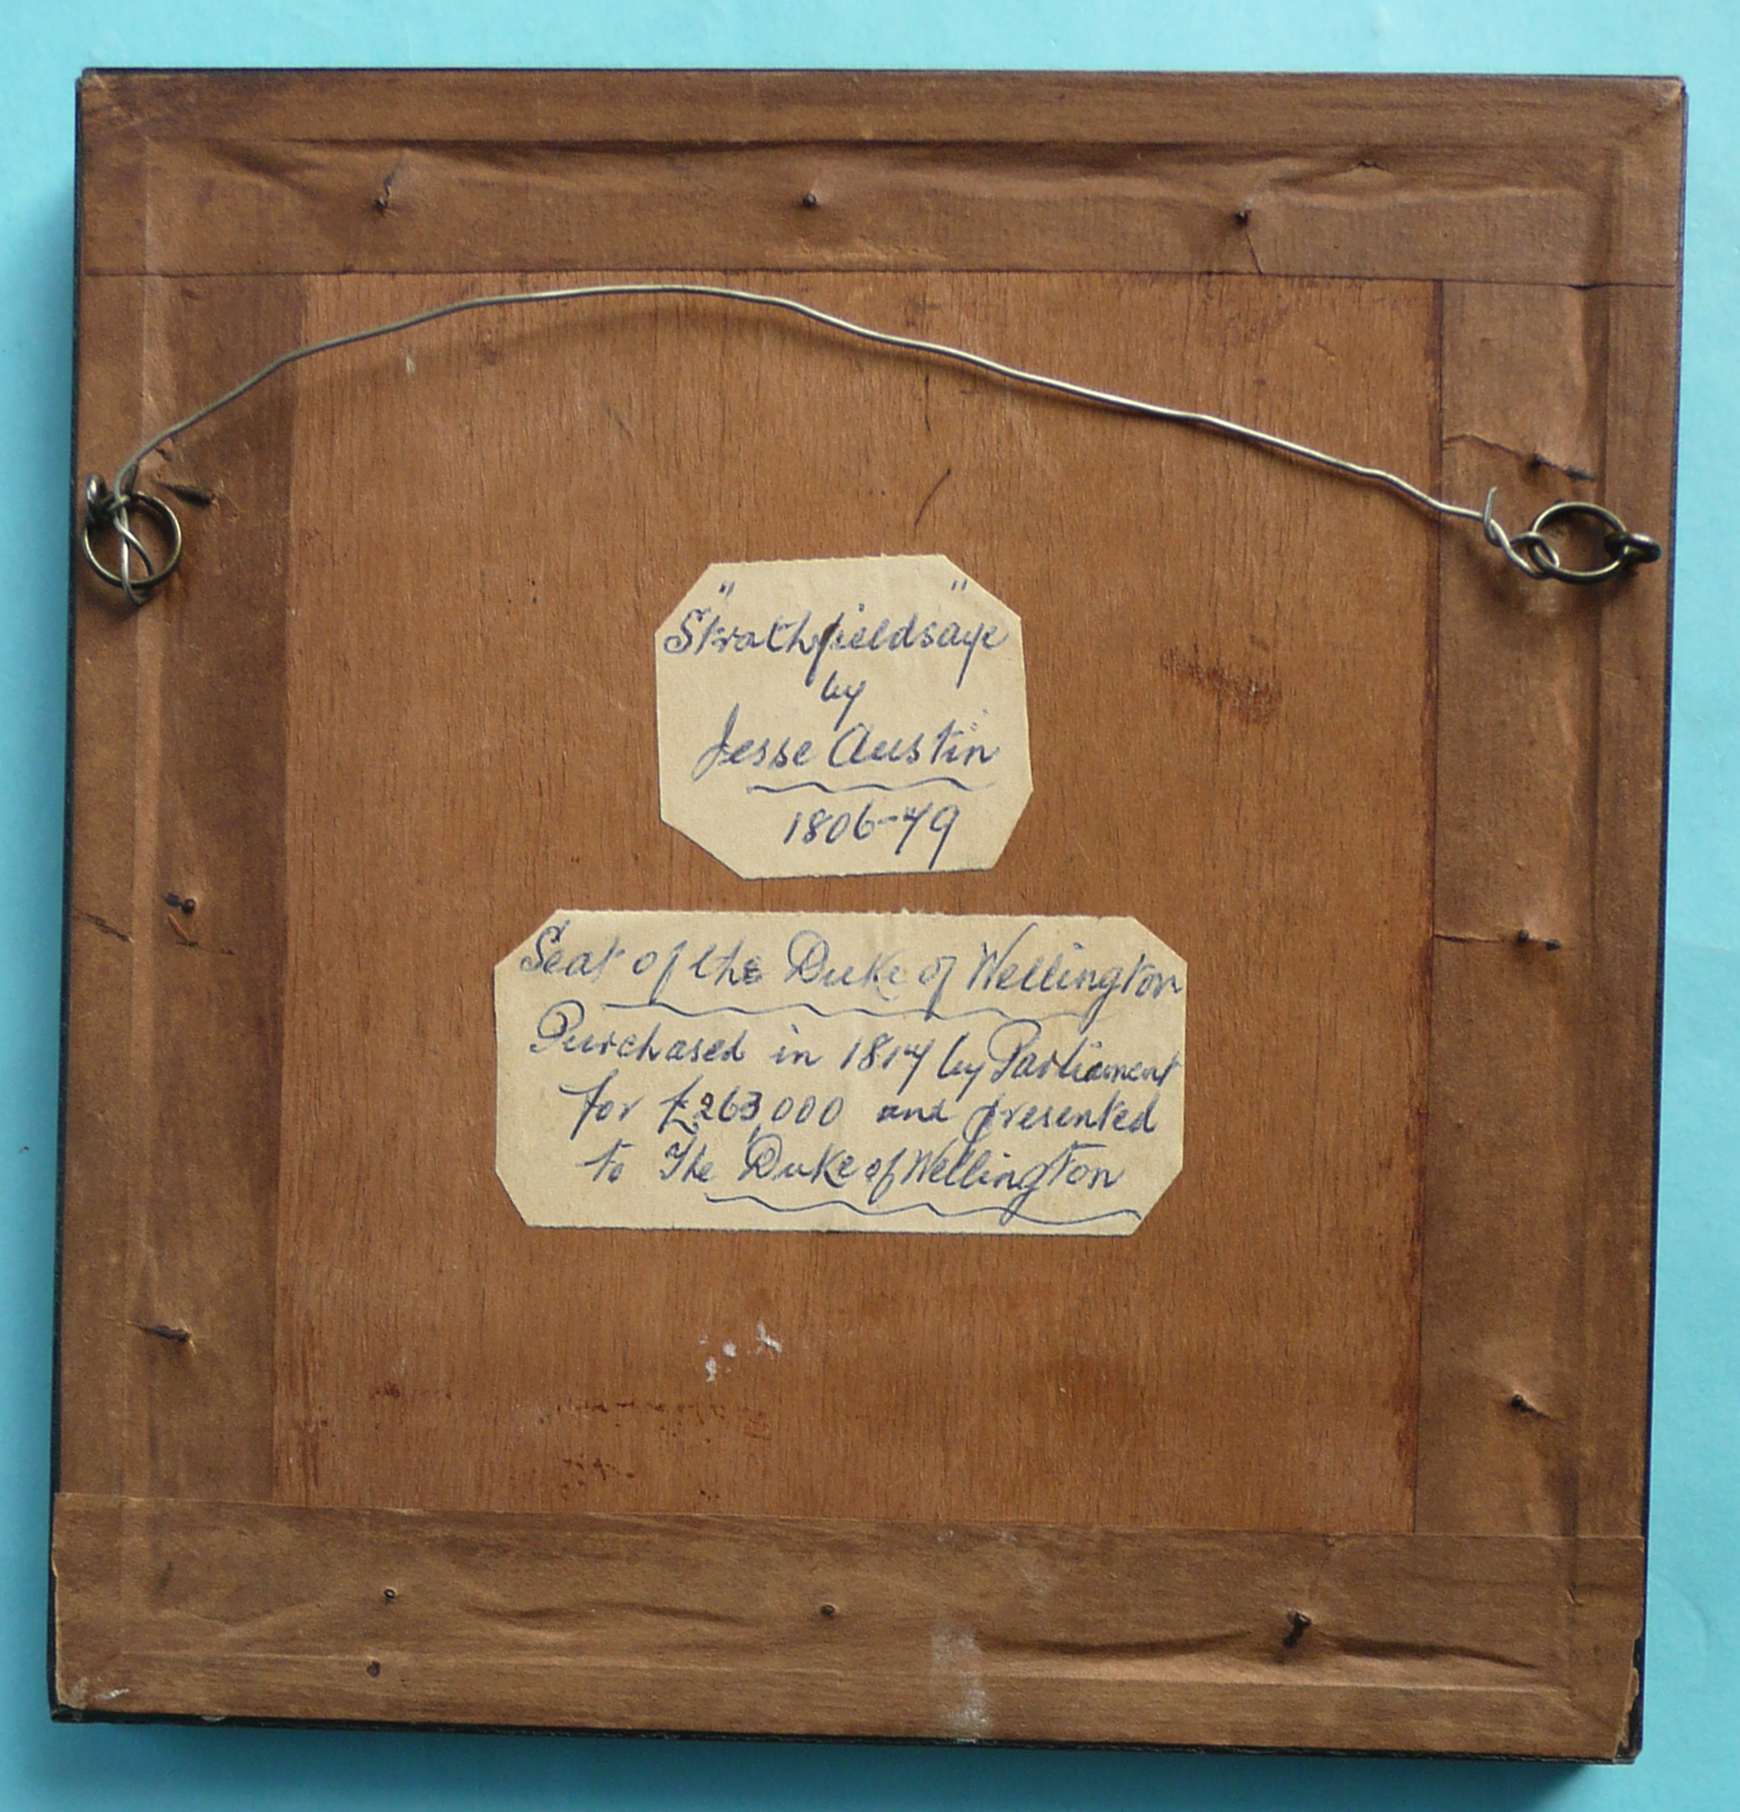 "Strathfieldsaye"
by
Jesse Austin
1806-79
Seat of the Duke of Wellington
Purchased in 1817 by Parliament
for £263,000 and presented
to The Duke of Wellington